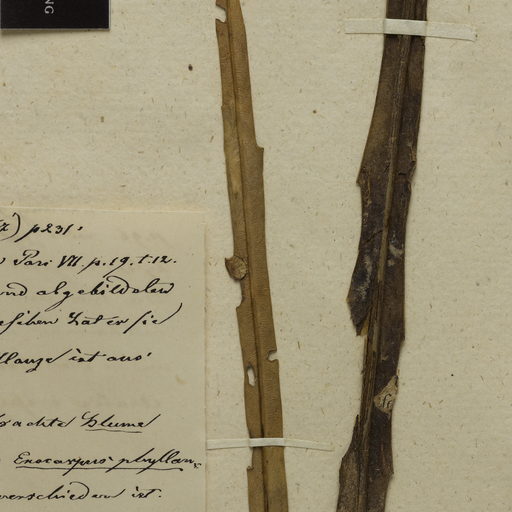 NG
) p 231.
Pari VII. p. 19. t. 12.
und abgebildeten
hat er sie
Pflanze ist aus
Blume
Exocarpus phyllan
verschieden ist.